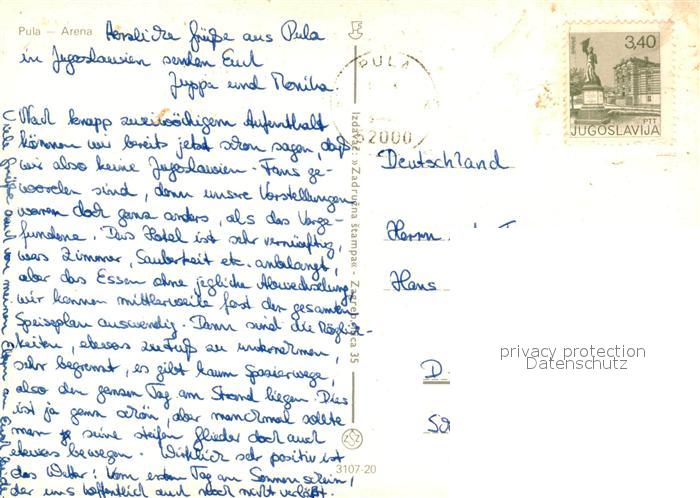 Pula — Arena
Herzliche Grüße aus Pula
in Jugoslawien senden Euch
Juppa und Monika.
Nach knapp zweiwöchigem Aufenthalt
können wir bereits jetzt schon sagen, daß
wir also keine Jugoslawien-Fans ge-
worden sind, denn unsre Vorstellungen
waren doch ganz anders, als das Vorge-
fundene. Das Hotel ist sehr vernünftig,
was Zimmer, Sauberkeit etc. anbelangt,
aber das Essen ohne jegliche Abwechslung,
wir können mittlerweile fast den gesamten
Speiseplan auswendig. Dann sind die Möglich-
keiten, etwas zu Fuß zu unternehmen,
sehr begrenzt, es gibt kaum Spazierwege,
also den ganzen Tag am Strand liegen. Dies
ist ja ganz schön, aber manchmal sollte
man seine steifen Glieder doch auch
etwas bewegen. Wirklich sehr positiv ist
das Wetter: Vom ersten Tag an Sonnenschein,
der uns hoffentlich auch noch nicht verläßt.
Viele Grüße auch von meinen Eltern an Euch beide
Izdavač: »Zadružna štampa« - Zagreb 35
3107-20
PULA
52000
3,40
PTT
JUGOSLAVIJA
Deutschland
Herrn
Hans
D
privacy protection
Datenschutz